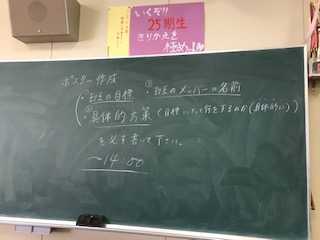 いくぞ!!
25期生
きりかえを
極めよう
ポスター作成
①・班の目標 ②・班のメンバーの名前
③・具体的方策(目標にむけて何をするのか(具体的に))
を必ず書いて下さい。
~14:00